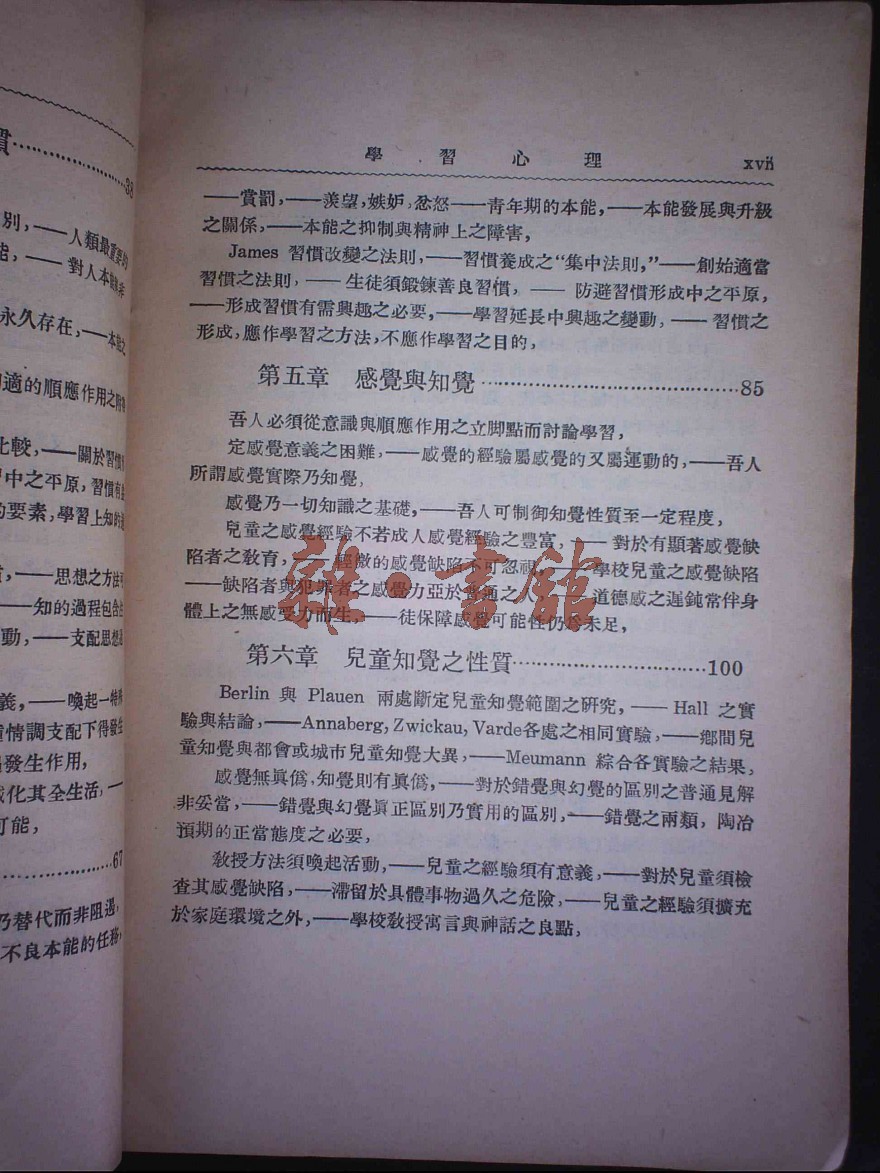 質……38
別,——人類最重要的
能,——對人本能非
永久存在,——本能之
適的順應作用之
比較,——關於習慣
習中之平原,習慣有
的要素,學習上知的
——思想之方法
——知的過程包含
動,——支配思想
義,——喚起一特殊
情調支配下得發生
發生作用,
化其全生活,——
可能,
……67
乃替代而非阻遏,
不良本能的任務,
學習心理 xvii
——賞罰,——羨望,嫉妒,忿怒——青年期的本能,——本能發展與升級
之關係,——本能之抑制與精神上之障害,
James 習慣改變之法則,——習慣養成之“集中法則,”——創始適當
習慣之法則,——生徒須鍛鍊善良習慣,——防避習慣形成中之平原,
——形成習慣有需興趣之必要,——學習延長中興趣之變動,——習慣之
形成,應作學習之方法,不應作學習之目的,
第五章 感覺與知覺……85
吾人必須從意識與順應作用之立脚點而討論學習,
定感覺意義之困難,——感覺的經驗屬感覺的又屬運動的,——吾人
所謂感覺實際乃知覺,
感覺乃一切知識之基礎,——吾人可制御知覺性質至一定程度,
兒童之感覺經驗不若成人感覺經驗之豐富,——對於有顯著感覺缺
陷者之敎育,輕微的感覺缺陷不可忽視,學校兒童之感覺缺陷
——缺陷者與犯罪者之感覺力亞於普通之人,——道德感之遲鈍常伴身
體上之無感受力而生,——徒保障感覺可能性仍爲未足,
雜·書館
第六章 兒童知覺之性質……100
Berlin 與 Plauen 兩處斷定兒童知覺範圍之研究,——Hall 之實
驗與結論,——Annaberg, Zwickau, Varde各處之相同實驗,——鄉間兒
童知覺與都會或城市兒童知覺大異,——Meumann 綜合各實驗之結果,
感覺無眞僞,知覺則有眞僞,——對於錯覺與幻覺的區別之普通見解
非妥當,——錯覺與幻覺眞正區別乃實用的區別,——錯覺之兩類,陶冶
預期的正當態度之必要,
敎授方法須喚起活動,——兒童之經驗須有意義,——對於兒童須檢
查其感覺缺陷,——滯留於具體事物過久之危險,——兒童之經驗須擴充
於家庭環境之外,——學校敎授寓言與神話之良點,